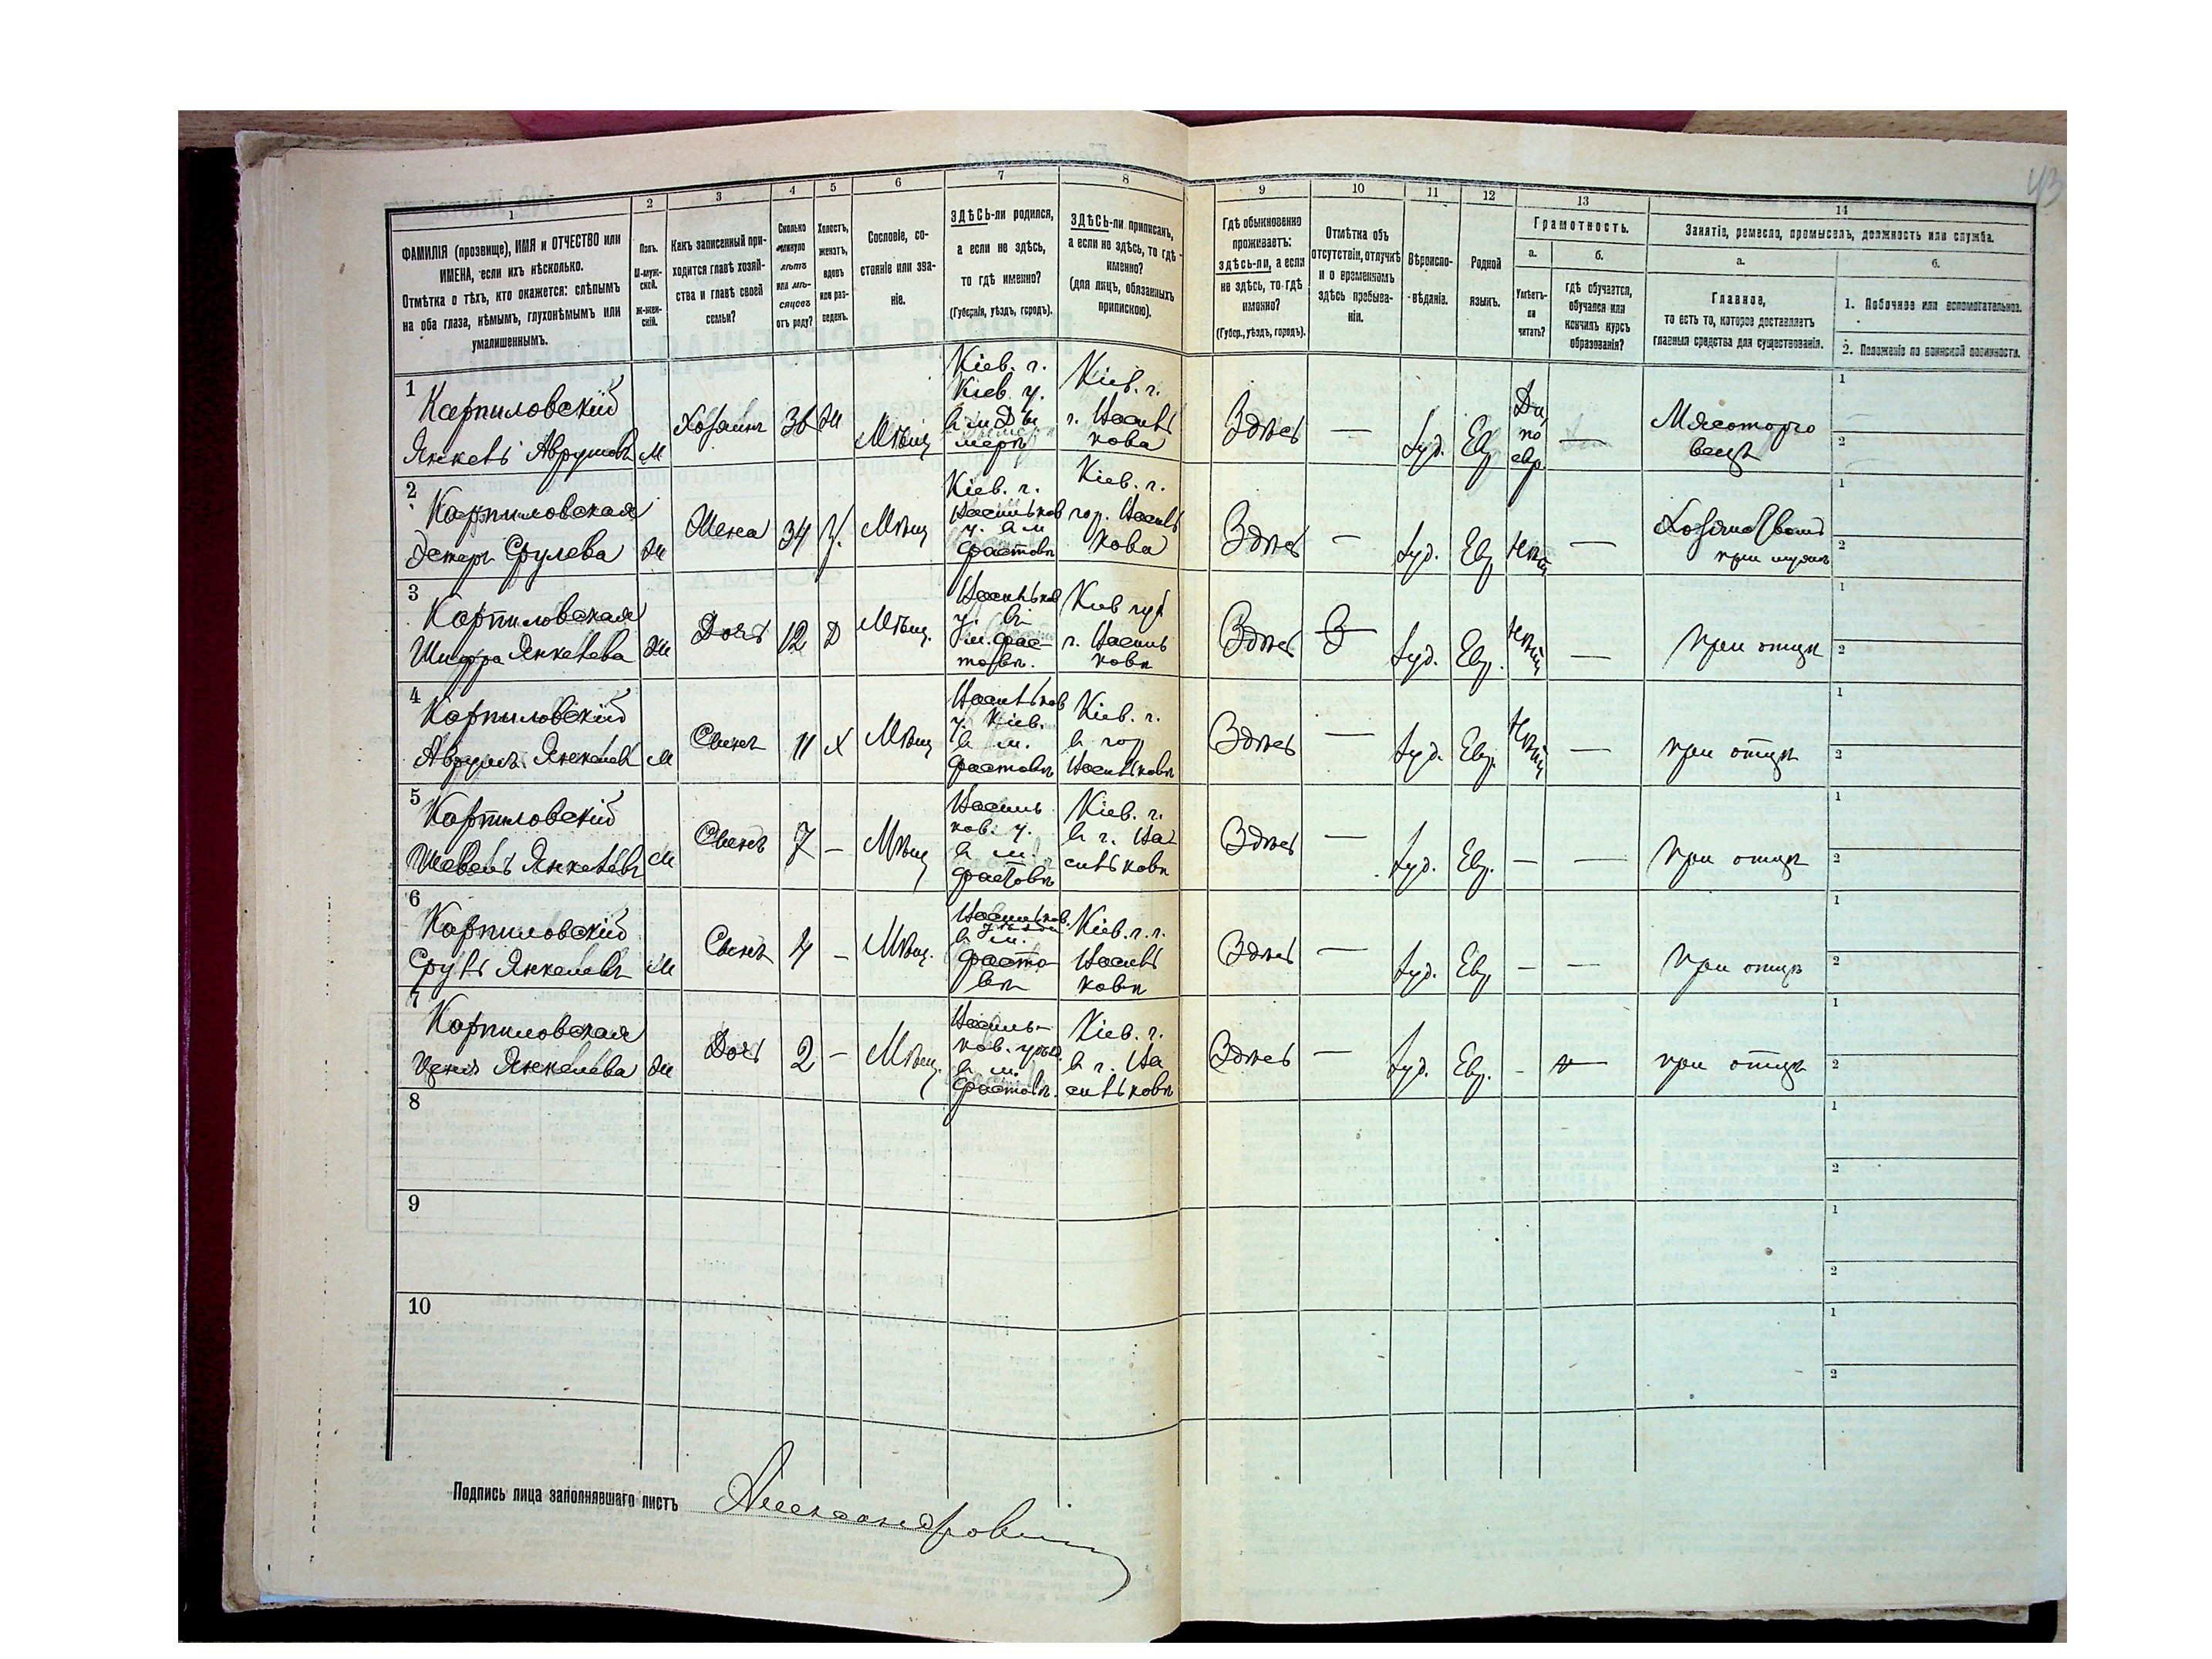 43
1 2 3 4 5 6 7 8 9 10 11 12 13 14
ФАМИЛІЯ (прозвище), ИМЯ и ОТЧЕСТВО или
ИМЕНА, если ихъ нѣсколько.
Отмѣтка о тѣхъ, кто окажется: слѣпымъ
на оба глаза, нѣмымъ, глухонѣмымъ или
умалишеннымъ.
Полъ.
М-муж-
ской.
Ж-жен-
скій.
Какъ записанный при-
ходится главѣ хозяй-
ства и главѣ своей
семьи?
Сколько
минуло
лѣтъ
или мѣ-
сяцевъ
отъ роду?
Холостъ,
женатъ,
вдовъ
или раз-
веденъ.
Сословіе, со-
стояніе или зва-
ніе.
ЗДѢСЬ-ли родился,
а если не здѣсь,
то гдѣ именно?
(Губернія, уѣздъ, городъ).
ЗДѢСЬ-ли приписанъ,
а если не здѣсь, то гдѣ
именно?
(для лицъ, обязанныхъ
припискою).
Гдѣ обыкновенно
проживаетъ:
здѣсь-ли, а если
не здѣсь, то гдѣ
именно?
(Губер., уѣздъ, городъ).
Отмѣтка объ
отсутствіи, отлучкѣ
и о временномъ
здѣсь пребыва-
ніи.
Вѣроиспо-
вѣданіе.
Родной
языкъ.
Грамотность.
а.
Умѣетъ-
ли
читать?
б.
гдѣ обучается,
обучался или
кончилъ курсъ
образованія?
Занятіе, ремесло, промыселъ, должность или служба.
а.
Главное,
то есть то, которое доставляетъ
главныя средства для существованія.
б.
1. Побочное или вспомогательное.
2. Положеніе по воинской повинности.
1
Карпиловскій
Янкель Аврумовъ
М
Хозяинъ
36
Ж
Мѣщ
Кіев. г.
Кіев. у.
в м. Ды
мерѣ
Кіев. г.
г. Василь
кова
Здѣсь
—
Іуд.
Евр
Да,
по
евр.
—
Мясоторго
вецъ
1
2
2
Карпиловская
Эстеръ Срулева
Ж
Жена
34
З.
Мѣщ
Кіев. г.
Васильков
у. в м
Фастовѣ
Кіев. г.
гор. Василь
кова
Здѣсь
—
Іуд.
Евр
Нѣтъ
—
при мужѣ
1
2
3
Карпиловская
Шифра Янкелева
Ж
Дочь
12
Д
Мѣщ.
Васильков
у. въ
м. Фас-
товѣ.
Кіев губ
г. Василь
ковѣ
Здѣсь
Іуд.
Евр.
Нѣтъ
—
при отцѣ
1
2
4
Карпиловскій
Аврумъ Янкелевъ
М
Сынъ
11
Х
Мѣщ
Васильков
у. Кіев.
в м.
Фастовѣ
Кіев. г.
в гор
Васильковѣ
Здѣсь
—
Іуд.
Евр.
Нѣтъ
—
при отцѣ
1
2
5
Карпиловскій
Шевель Янкелевъ
М
Сынъ
7
—
Мѣщ
Василь
ков. у.
в м.
Фастовѣ
Кіев. г.
в г. Ва
сильковѣ
Здѣсь
—
Іуд.
Евр.
—
—
при отцѣ
1
2
6
Карпиловскій
Сруль Янкелевъ
М
Сынъ
4
—
Мѣщ.
Васильков.
уѣзда
в м.
Фасто-
вѣ
Кіев. г. г.
Василь
ковѣ
Здѣсь
—
Іуд.
Евр
—
—
при отцѣ
1
2
7
Карпиловская
Янкелева
Ж
Дочь
2
—
Мѣщ.
Василь-
ков. уѣзд.
в м.
Фастовѣ.
Кіев. г.
в г. Ва
сильковѣ
Здѣсь
—
Іуд.
Евр.
-
—
при отцѣ
1
2
8
1
2
9
1
2
10
1
2
Подпись лица заполнявшаго листъ